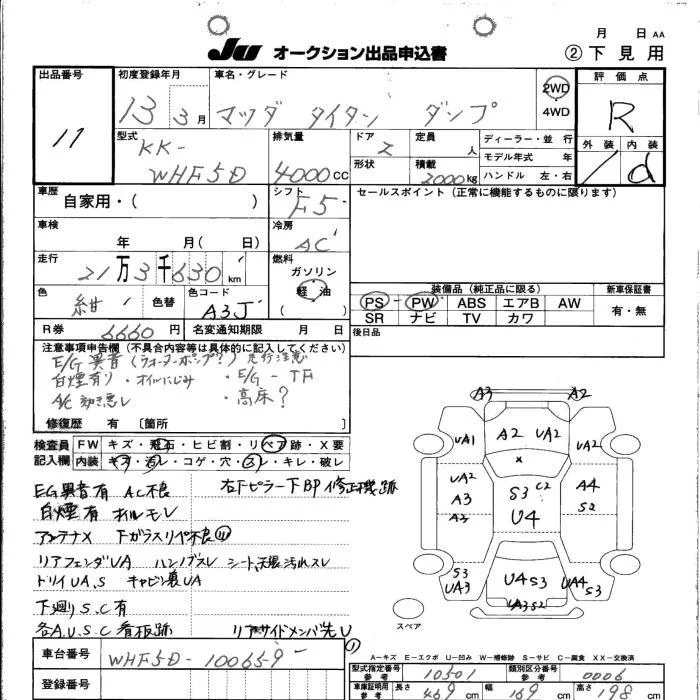 月 日 AA
JU オークション出品申込書
② 下見用
出品番号
11
初度登録年月
13 3月
車名・グレード
マツダ タイタン ダンプ
2WD
4WD
評価点
R
外装 内装
d
型式
KK-
WHF5D
排気量
4000cc
ドア
2
定員
人
形状
積載
2000kg
ディーラー・並 行
モデル年式 年
ハンドル 左・右
車歴
自家用・( )
シフト
F5
セールスポイント (正常に機能するものに限ります)
車検
年 月( 日)
冷房
AC
走行
21万3千630km
燃料
ガソリン
軽 油
( )
色
紺
色替
色コード
A3J
装備品 (純正品に限る)
PS PW ABS エアB AW
SR ナビ TV カワ
新車保証書
有・無
R券 6660円
名変通知期限 月 日
後日品
注意事項申告欄 (不具合内容等は具体的に記入してください)
E/G異音 (ウォーターポンプ?) 走行注意
白煙有り・オイルにじみ ・E/G-TF
A/C 効き悪い ・高床?
修復歴 有 〔箇所 〕
検査員 FW キズ・飛石・ヒビ割・リペア跡・X要
記入欄 内装 キズ・汚レ・コゲ・穴・スレ・キレ・破レ
EG異音有 AC不良
右下ピラー下BP修正機跡
白煙有 オイルモレ
アンテナX 下ガラスリペ不良
リアフェンダUA ハンドブスレ シート、天張汚れスレ
トリイUA、S キャビン裏UA
下廻りS、C有
各A、U、S、C 看板跡 リアサイドメンバ先U
A3 A2
UA1 A2 UA2 UA2
X
UA2 C2
A3 S3 A4
A3 U4 S2
S3
UA3 U4 S3 UA4 S3
UA3 S2
スペア
A=キズ E=エクボ U=凹み W=補修跡 S=サビ C=腐食 XX=交換済
車台番号
WHF5D-100659
登録番号
型式指定番号
参考
10501
類別区分番号
参考
0006
車庫証明用
参考
長さ 469cm 幅 169cm 高さ 198cm